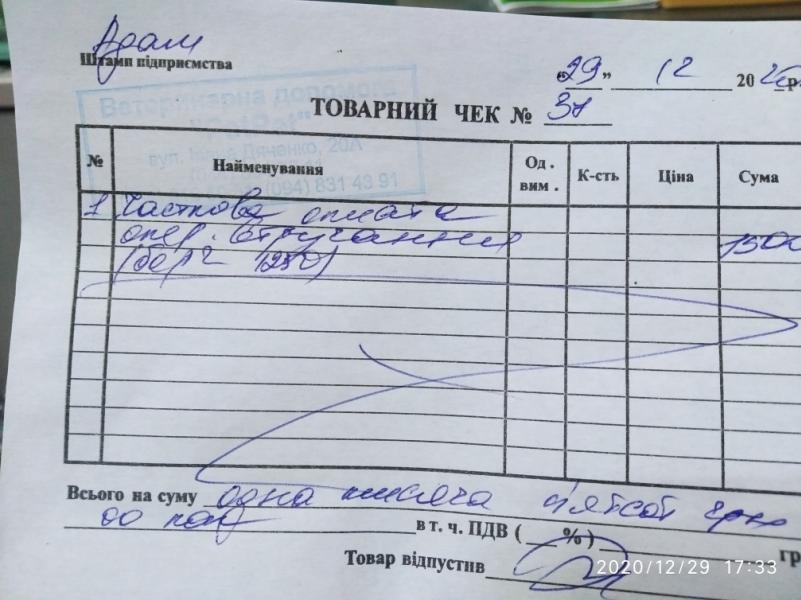 Адам
Штамп підприємства
"29" 12 2020 р.
Ветеринарна допомога
"PetPat"
вул. Дяченко, 20А
(094) 831 43 91
ТОВАРНИЙ ЧЕК № 37
№ Найменування Од. вим. К-сть Ціна Сума
1 Часткова оплата
опер. втручання 1500
(борг 1250)
Всього на суму одна тисяча п'ятсот грн
00 коп в т. ч. ПДВ ( %) гр
Товар відпустив
2020/12/29 17:33